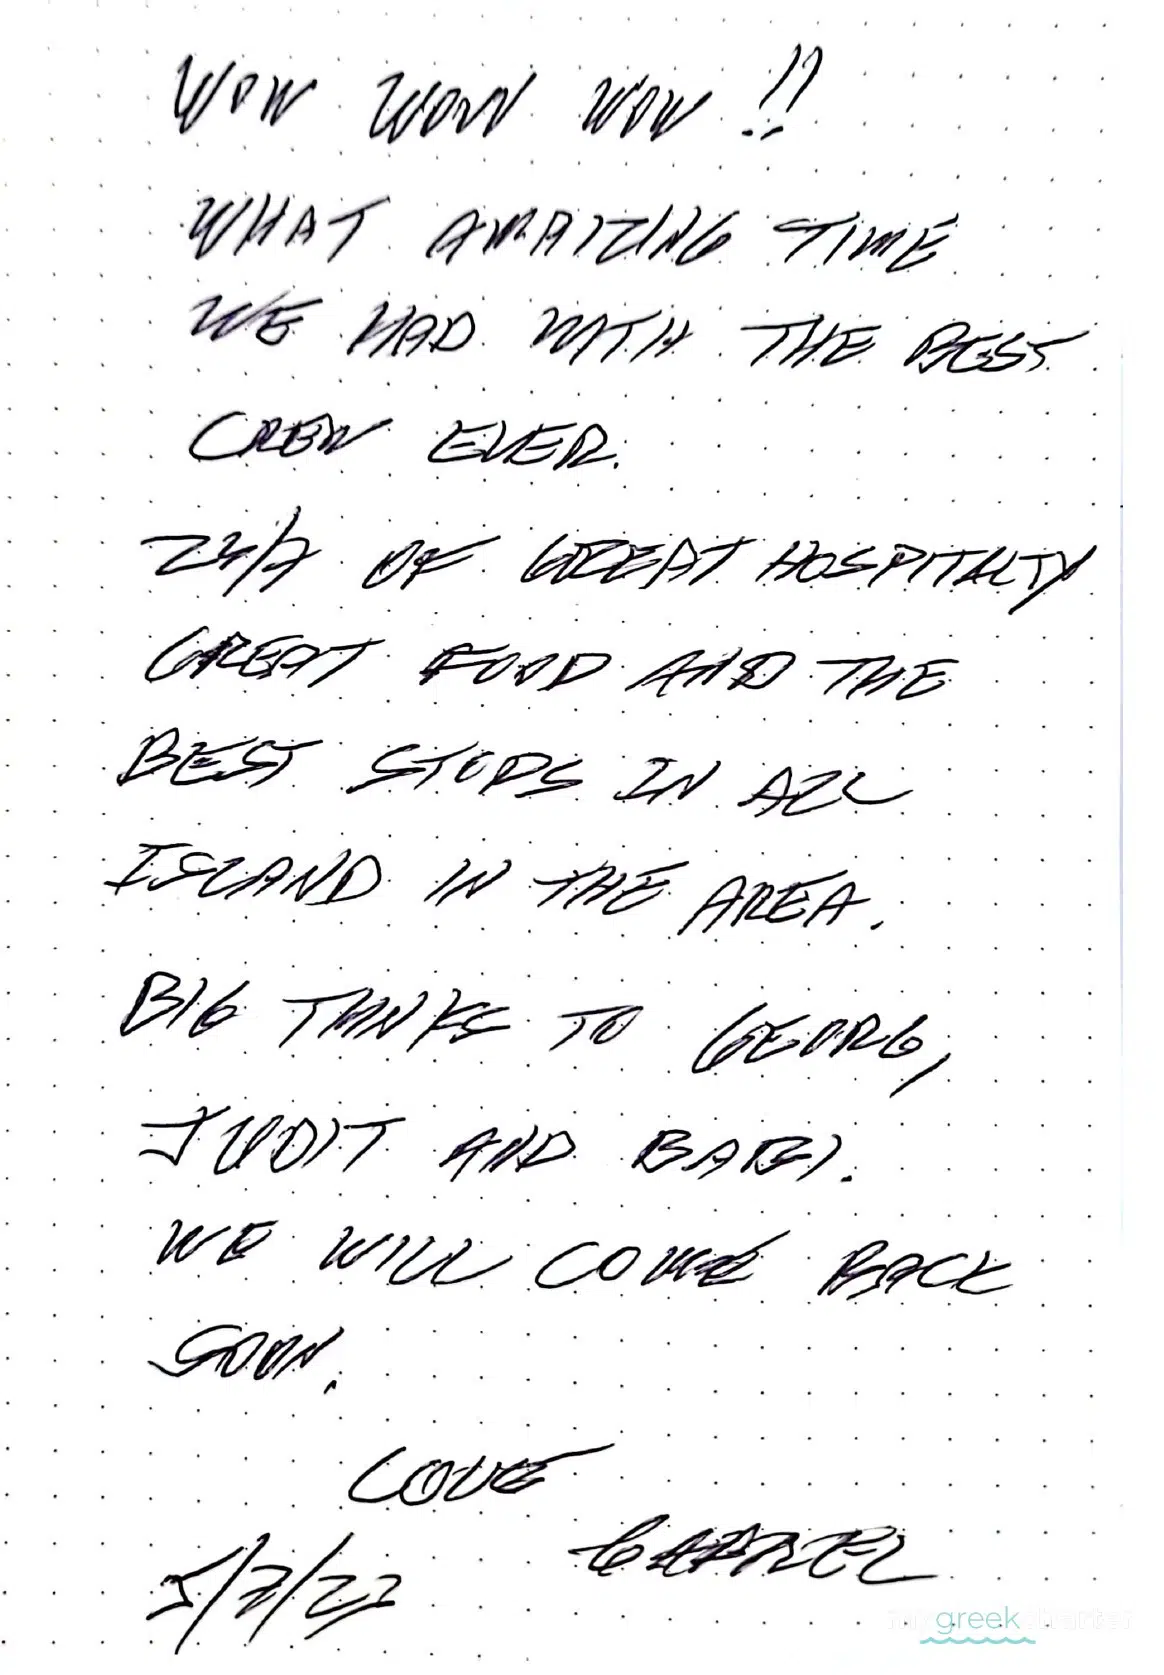 WOW WOW WOW !!
WHAT AMAIZING TIME
WE HAD WITH THE BEST
CREW EVER.
24/7 OF GREAT HOSPITALTY
GREAT FOOD AND THE
BEST STOPS IN ALL
ISLAND IN THE AREA.
BIG THNKS TO GEORG,
JUDIT AND BABI.
WE WILL COME BACK
SOON.
LOVE
GABRIEL
5/7/22
my greek charter